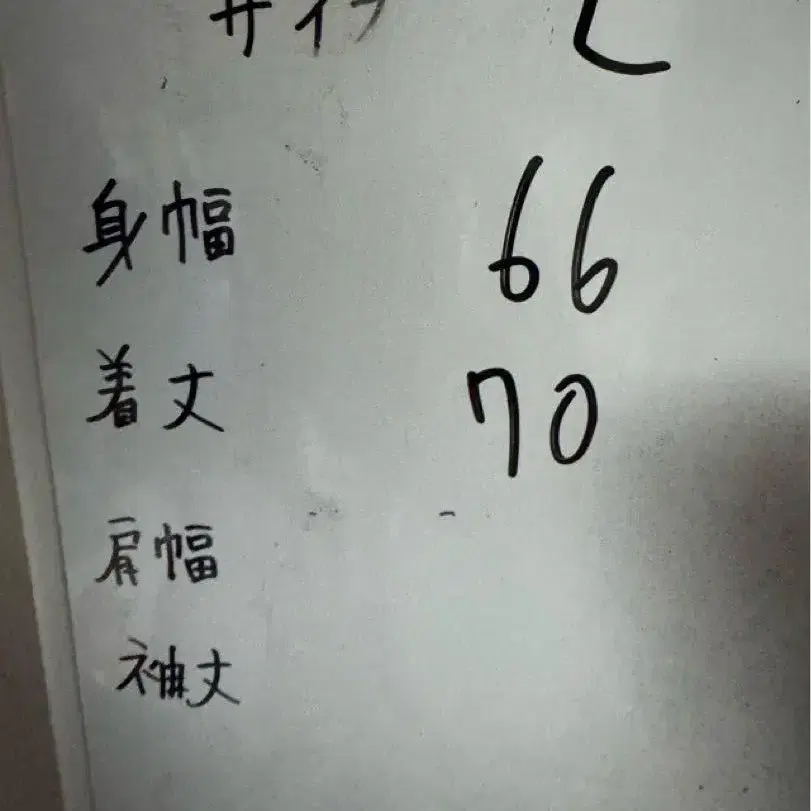 サイズ L
身幅 66
着丈 70
肩幅
袖丈